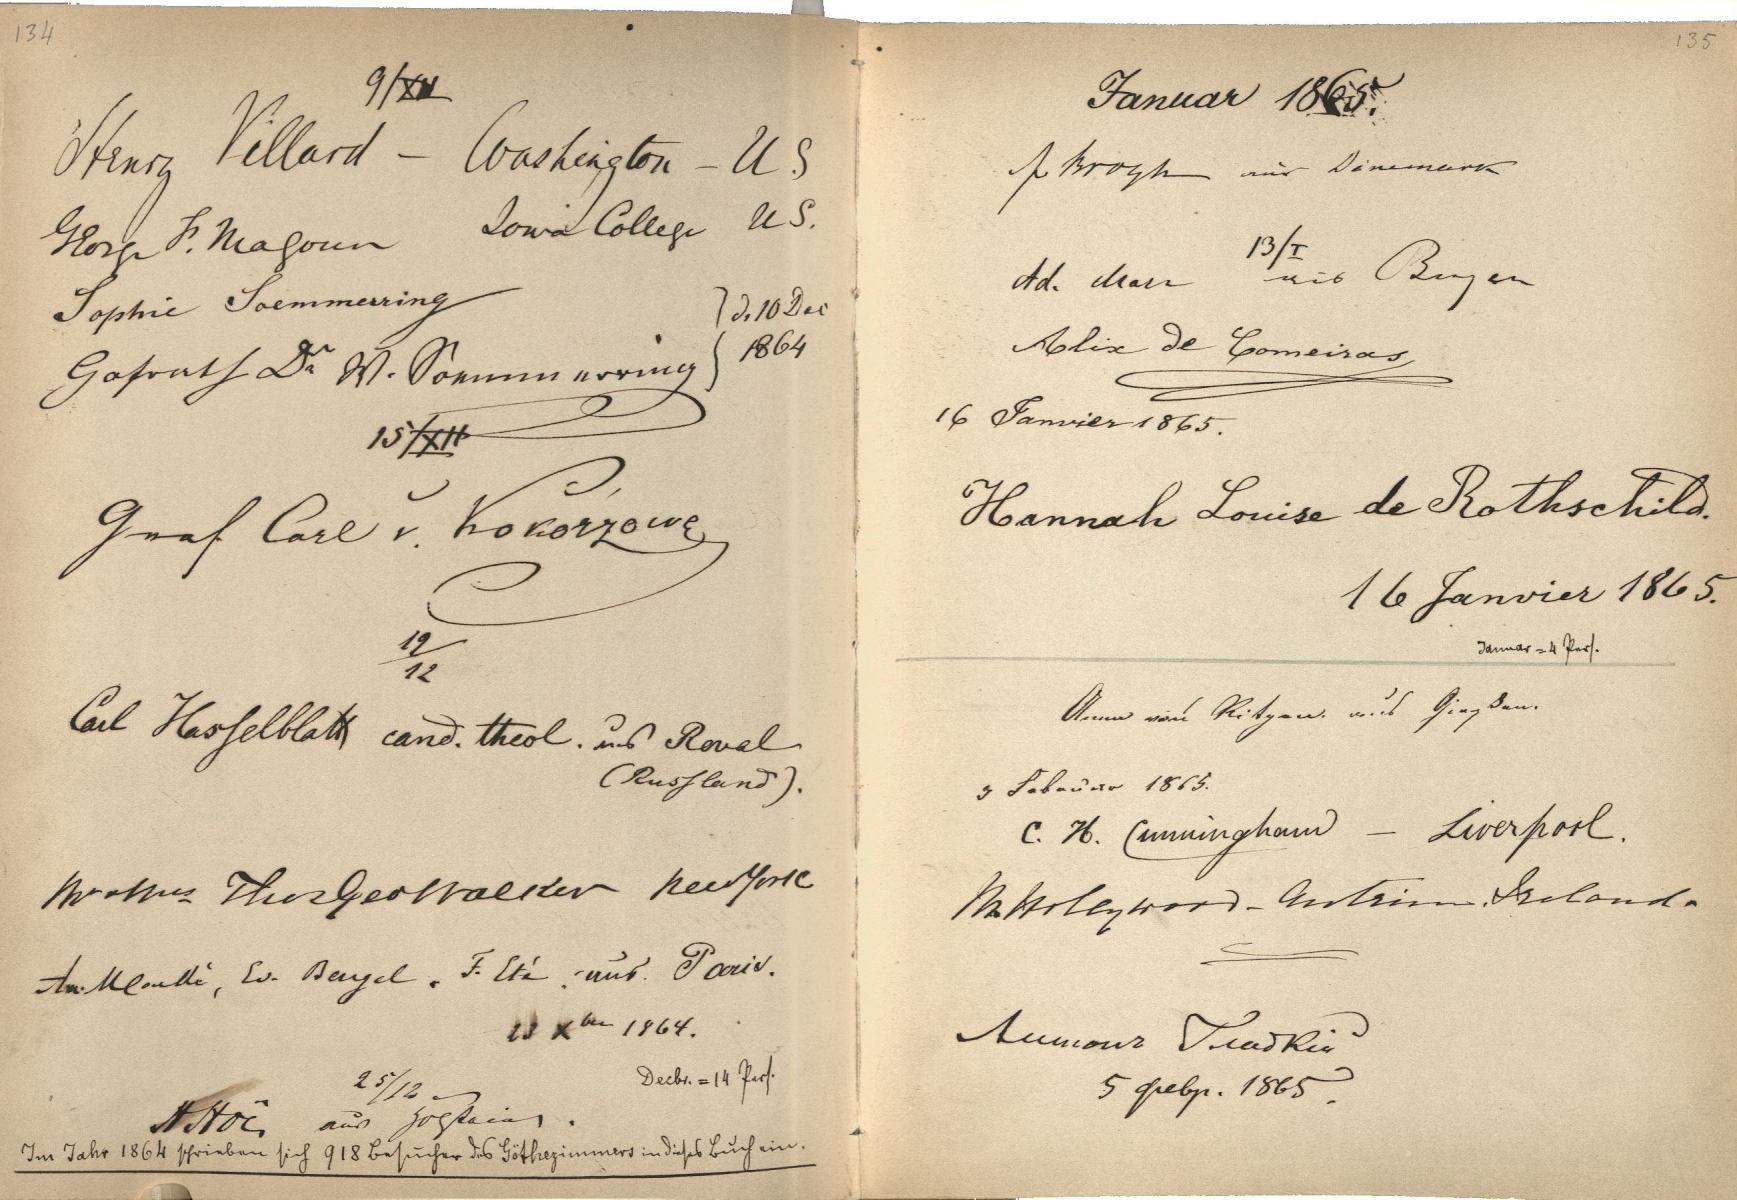 134
9/XII
Henry Villard – Washington – U.S
George F. Magoun Iowa College U.S.
Sophie Soemmerring
Hofrath Dr. W. Soemmerring
d. 10 Dec
1864
15/XII
Graf Carl v.
19/12
Carl Hasselblatt cand. theol. aus Reval
(Russland).
Mr & Mrs Thos Geo Walker New York
aus Paris.
23 Xber 1864.
Decbr. = 14 Pers.
25/12
aus Holstein.
Im Jahr 1864 schrieben sich 918 Besucher des Göthezimmers in dieses Buch ein.
135
Januar 1865.
aus Dänemark
13/I
Ad. Marx aus Bingen
Alix de Comeiras
16 Janvier 1865.
Hannah Louise de Rothschild.
16 Janvier 1865.
Januar = 4 Pers.
Anna von Ritgen aus Gießen.
3 Februar 1865.
C. H. Cunningham – Liverpool.
Holeywood – Antrim. Ireland.
5 февр. 1865.